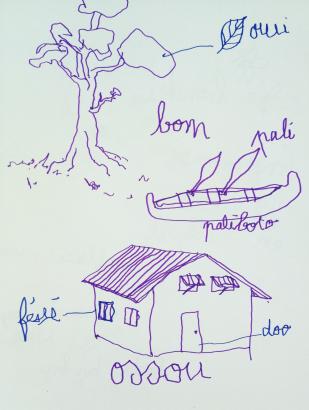 oui
bom
pali
paliboto
féssé
doo
ossou